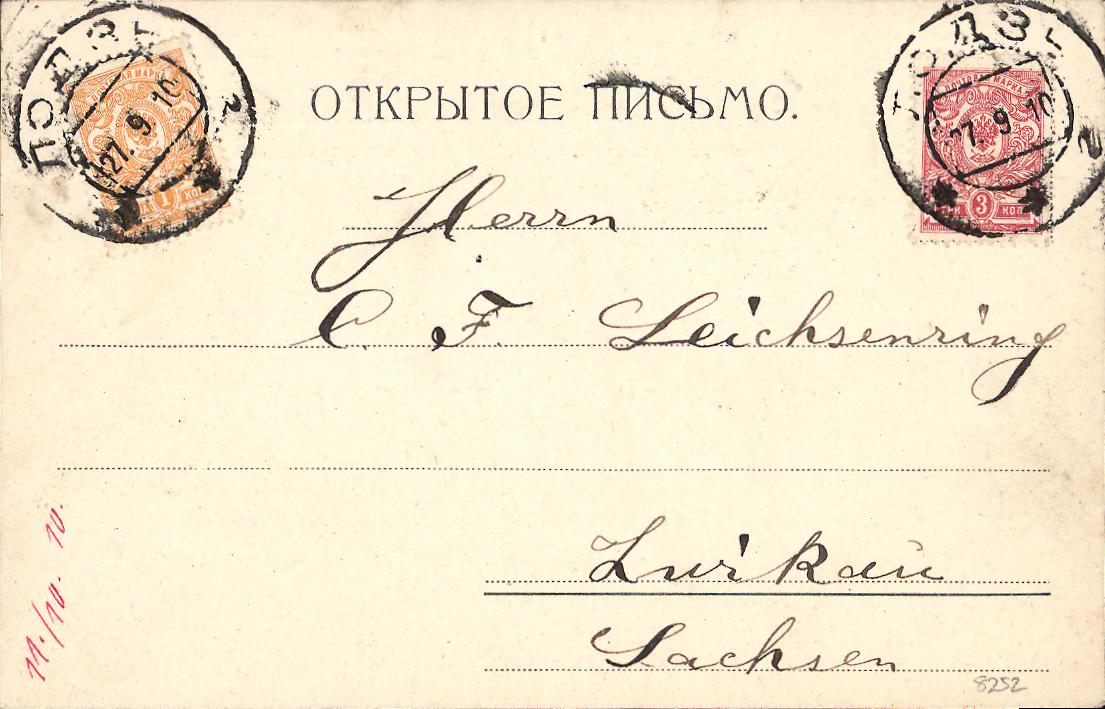 ЛОДЗЬ 2
27. 9 10
МАРКА
1 КОП
ОТКРЫТОЕ ПИСЬМО.
ЛОДЗЬ 2
27. 9 10
ПОЧТОВАЯ МАРКА
ТРИ 3 КОП
Herrn
C. F. Leichsenring
Zwikau
Sachsen
11./10. 10.
8252